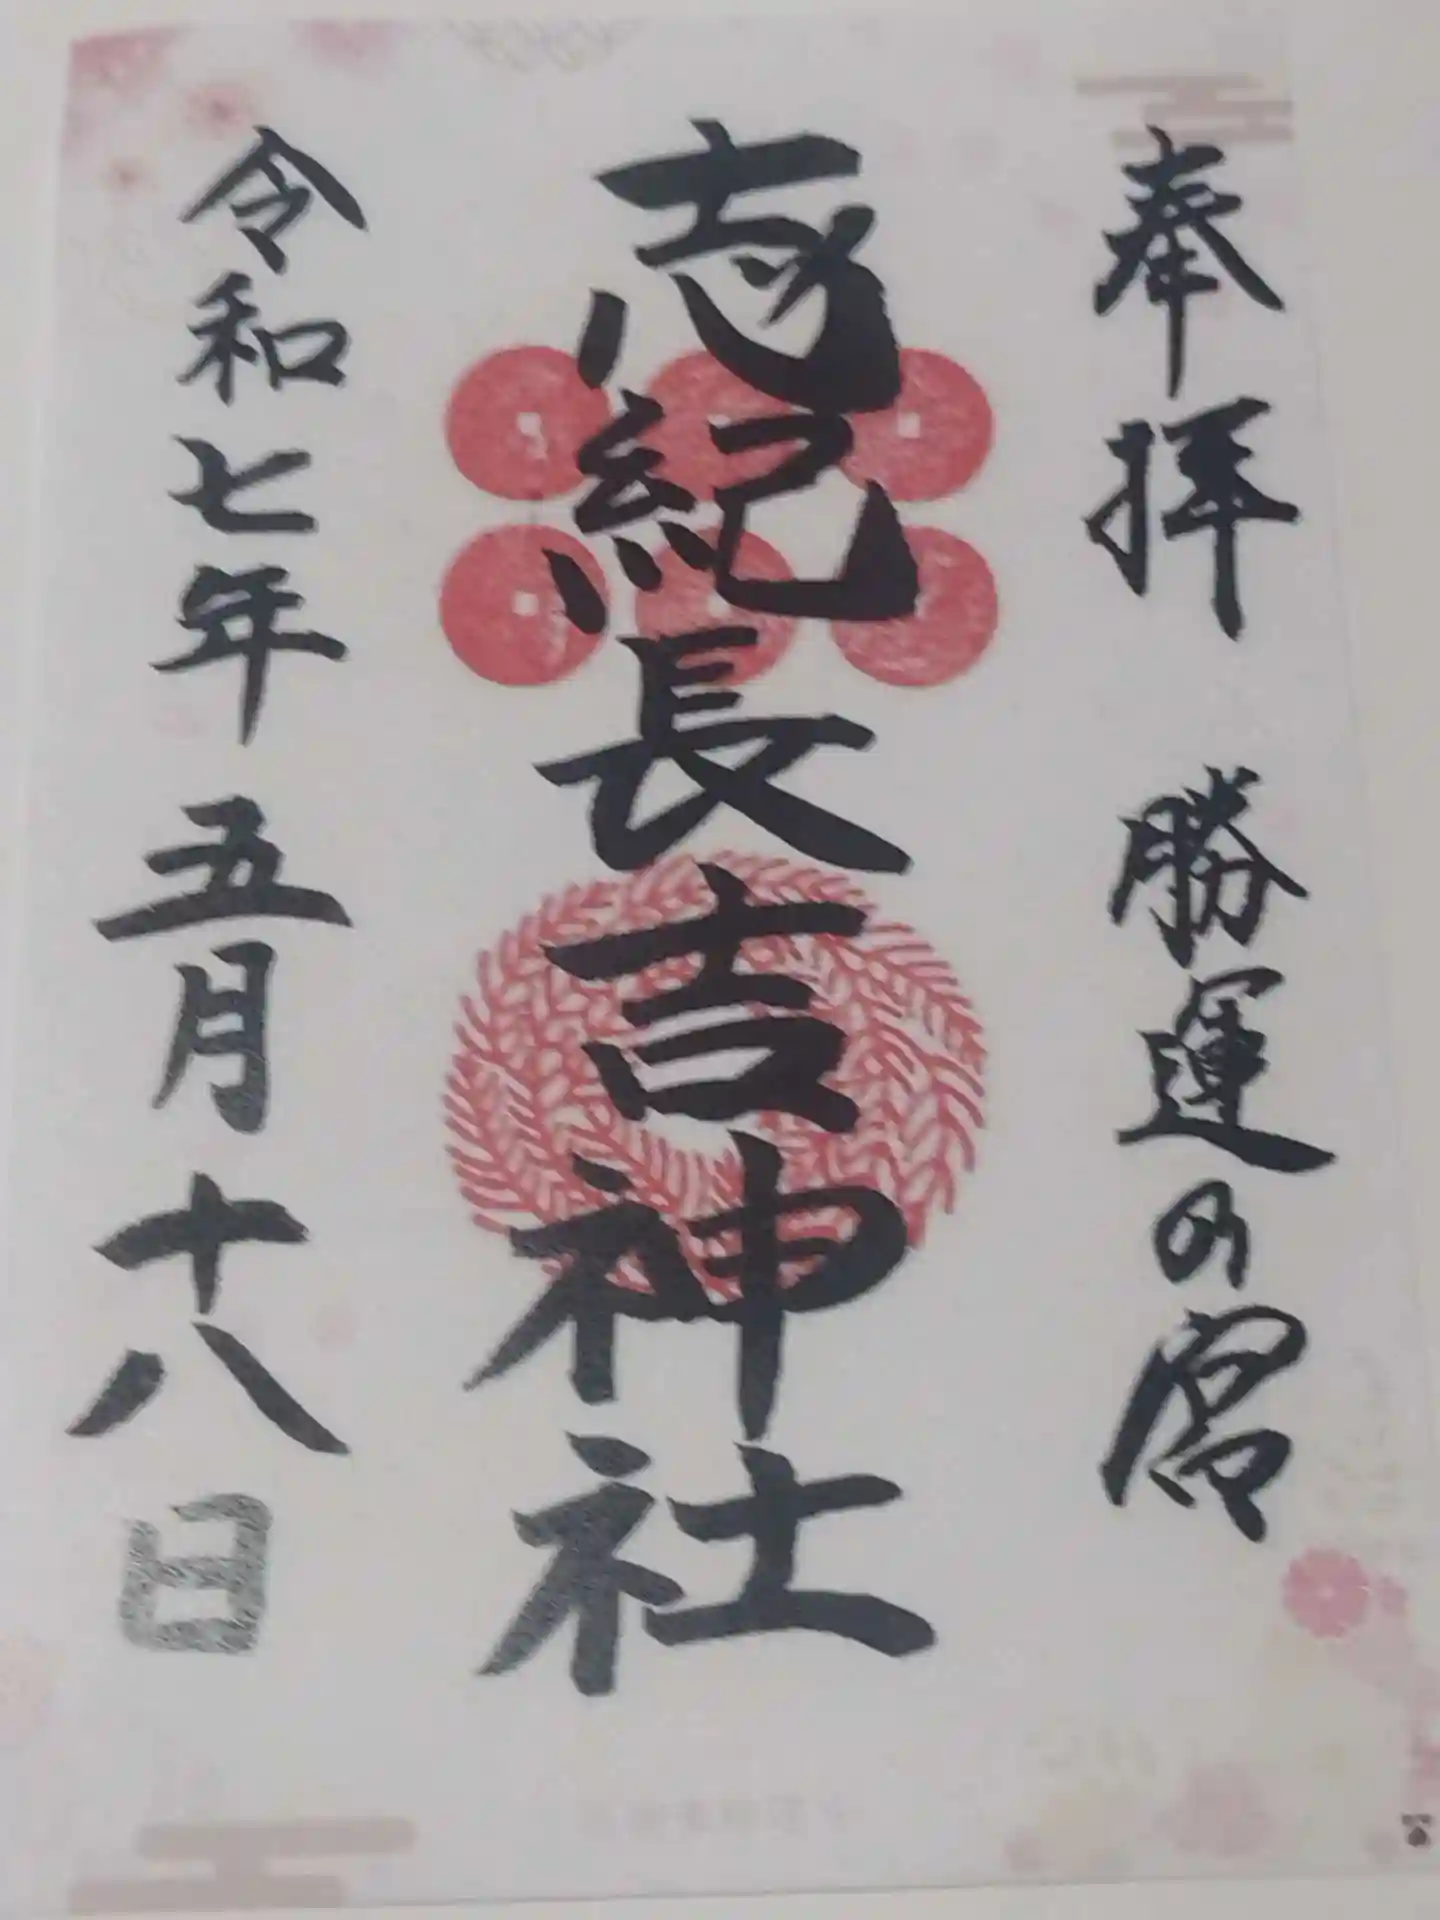 奉拝 勝運の宮
志紀長吉神社
令和七年 五月十八日